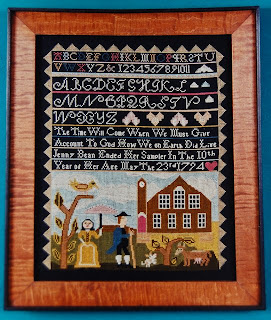 ABCDEFGHIKLMNOPQRSTU
VWXYZ & 1234567891011
ABCDEFGHIKL
MNOPQRSTV
WXYZ
The Time Will Come When We Must Give
Account To God How We on Earth Did Live
Jenny Bean Ended Her Sampler In The 10th
Year of Her Age May The 23rd 1794